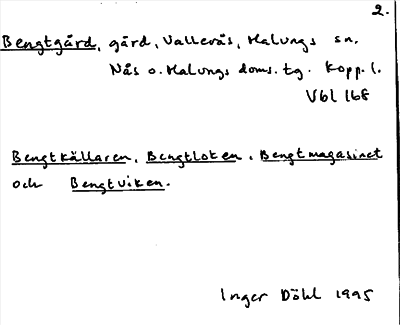 2.
Bengtgård, gård, Vallerås, Malungs sn.
Nås o. Malungs doms. tg. Kopp. l.
Vbl 168
Bengtkällaren, Bengtloken, Bengtmagasinet
och Bengtviken.
Inger Döhl 1995